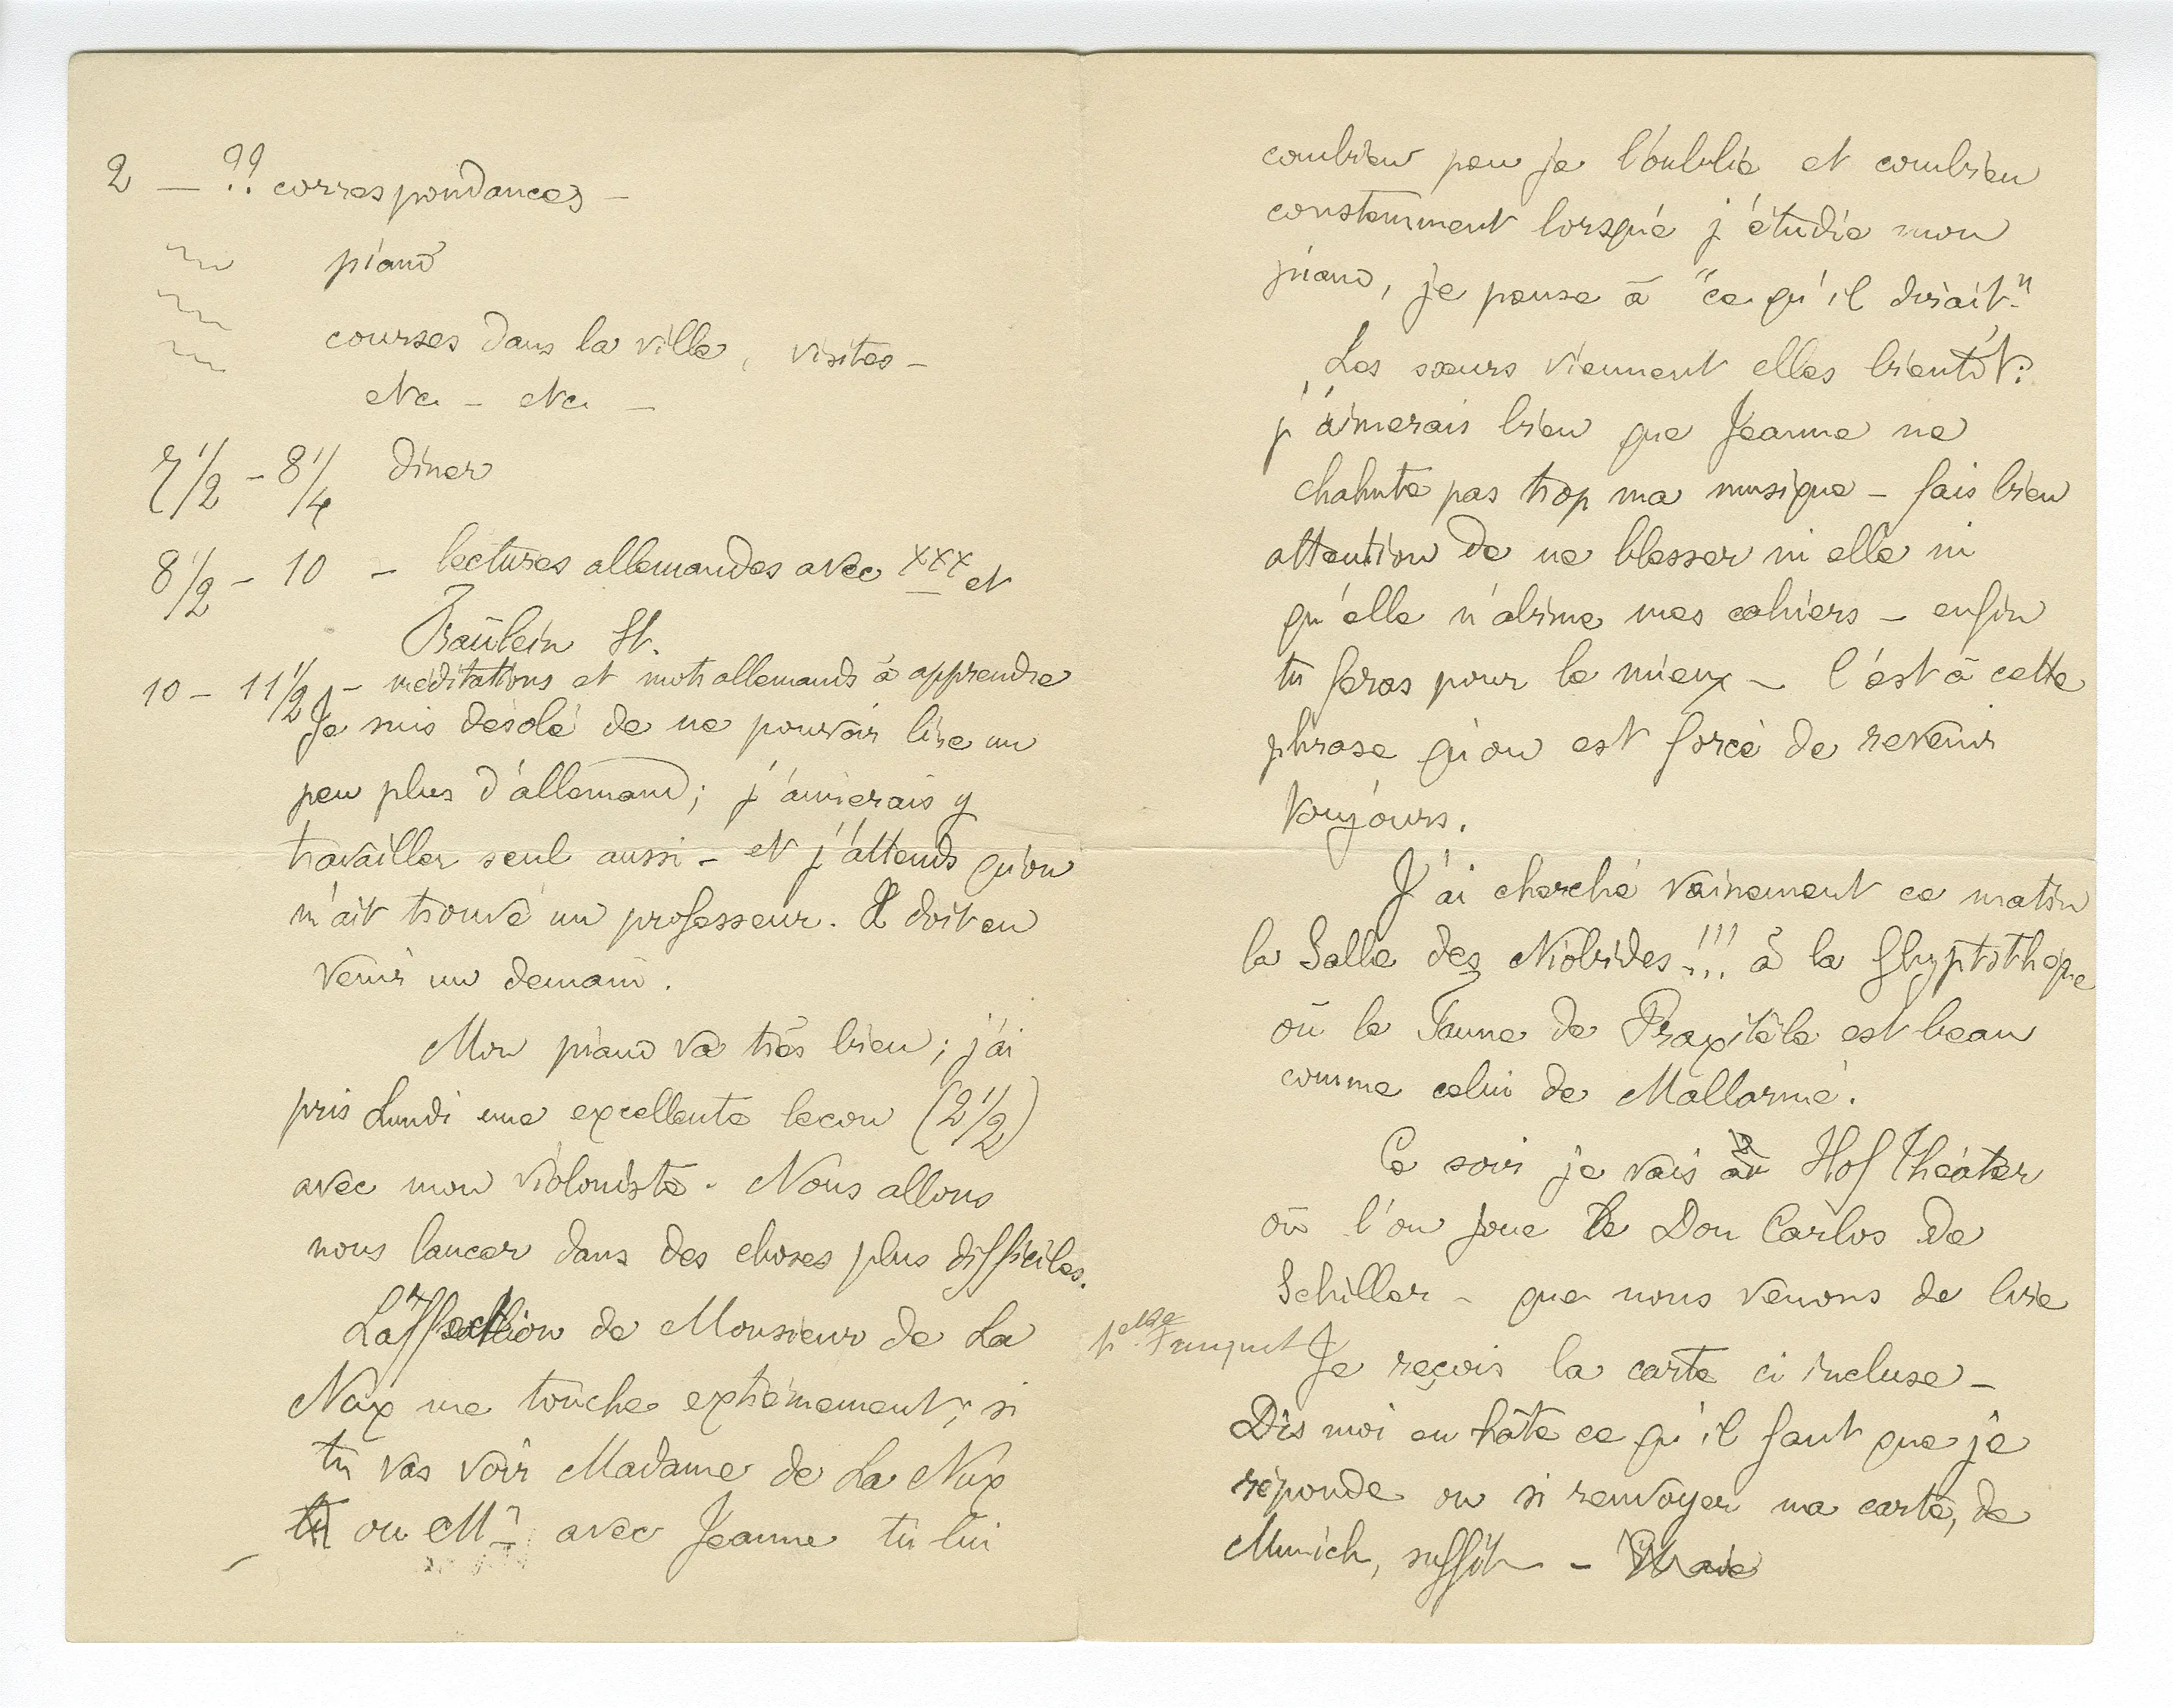 2 — ?? correspondances —
piano
courses dans la ville, visites —
etc. — etc. —
7 1/2 — 8 1/4 diner
8 1/2 — 10 — lectures allemandes avec xxx et
Fraülein St.
10 — 11 1/2 — méditations et mots allemands à apprendre
Je suis désolé de ne pouvoir lire un
peu plus d'allemand ; j'aimerais y
travailler seul aussi — et j'attends qu'on
m'ait trouvé un professeur. Il doit en
venir un demain.
Mon piano va très bien ; j'ai
pris Lundi une excellente lecon (2 1/2)
avec mon violoniste. Nous allons
nous lancer dans des choses plus difficiles.
L'affection de Monsieur de La
Nux me touche extrêmement ; si
tu vas voir Madame de La Nux
ou Mr avec Jeanne tu lui
combien peu je l'oublie et combien
constamment lorsque j'étudie mon
piano, je pense à "ce qu'il dirait."
Les sœurs viennent elles bientôt ?
j'aimerais bien que Jeanne ne
chahute pas trop ma musique — fais bien
attention de ne blesser ni elle ni
qu'elle n'abime mes cahiers — enfin
tu feras pour le mieux — c'est à cette
phrase qu'on est forcé de revenir
toujours.
J'ai cherché vainement ce matin
la Salle des Niobides !!! à la Glyptothèque
où le Faune de Praxitèle est beau
comme celui de Mallarmé.
Ce soir je vais au Hof Théater
où l'on joue le Don Carlos de
Schiller — que nous venons de lire
Je reçois la carte ci incluse —
Dis moi en hâte ce qu'il faut que je
réponde ou si renvoyer ma carte, de
Munich, suffit —